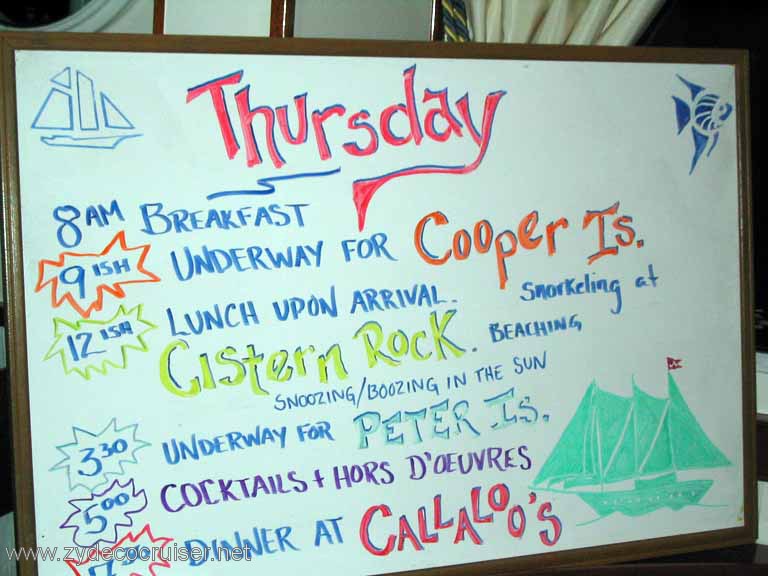 Thursday
8 AM BREAKFAST
9 ISH UNDERWAY FOR Cooper Is.
12 ISH LUNCH UPON ARRIVAL. Snorkeling at
Cistern Rock. BEACHING
SNOOZING/BOOZING IN THE SUN
3:30 UNDERWAY FOR PETER Is.
5:00 COCKTAILS + HORS D'OEUVRES
DINNER AT CALLALOO'S
www.zydecocruiser.net